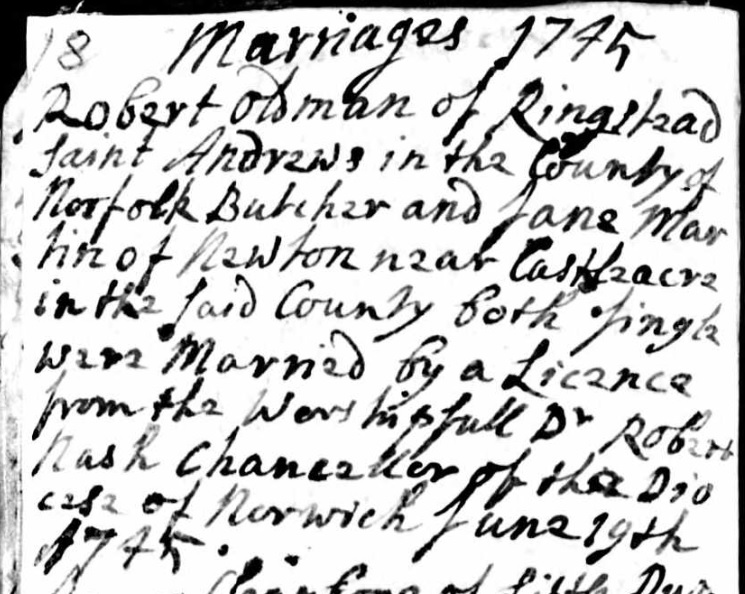 18 Marriages 1745
Robert Oldman of Ringstead
Saint Andrews in the County of
Norfolk Butcher and Jane Mar
tin of Newton near Castleacre
in the said County both single
were Married by a Licence
from the Worshipfull Dr Robert
Nash Chancellor of the Dio
cese of Norwich June 19th
1745
of